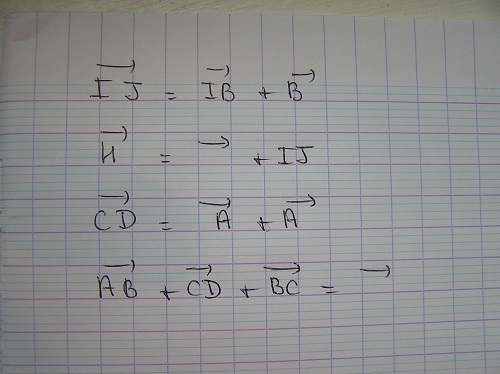 IJ = IB + B
H = + IJ
CD = A + A
AB + CD + BC =